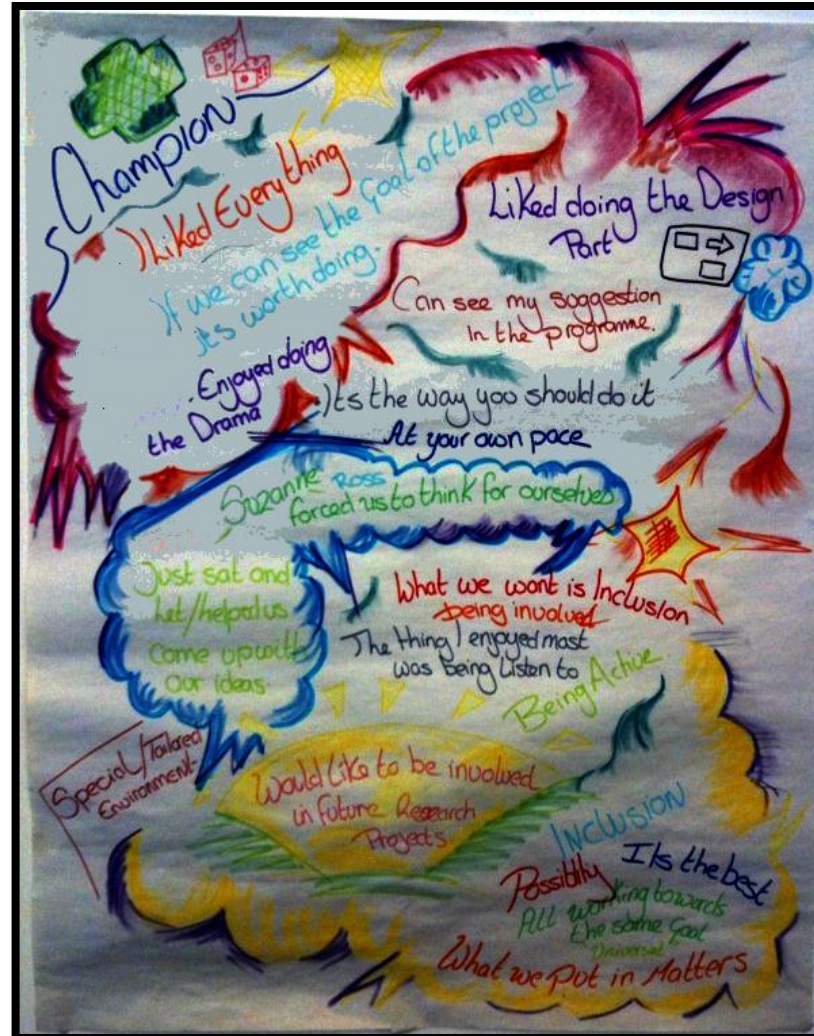 Champion
I Liked Everything
If we can see the Goal of the project
its worth doing.
Liked doing the Design
Part
Can see my suggestion
in the programme.
Enjoyed doing
the Drama
Its the way you should do it
At your own pace
Suzanne Ross
forced us to think for ourselves
Just sat and
Let/helped us
come up with
our ideas
What we want is Inclusion
being involved
The thing I enjoyed most
was being Listen to
Being Active
Special/Tailored
Environment
Would Like to be involved
in future Research
Projects
Inclusion
Its the best
Possiblity
All working towards
the same Goal
Universal
What we Put in Matters